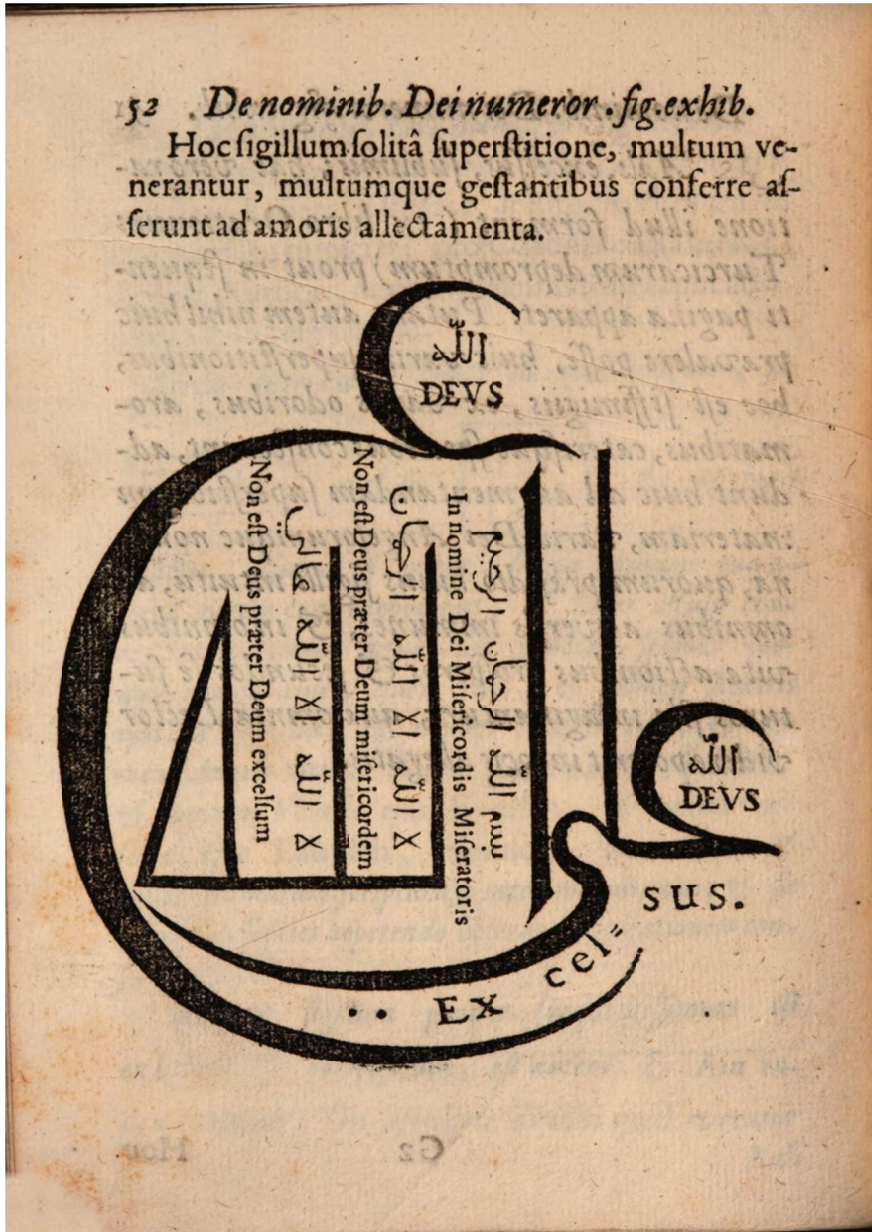 52 . De nominib. Dei numeror . fig. exhib.
Hoc ſigillum ſolitâ ſuperſtitione, multum ve-
nerantur, multumque geſtantibus conferre aſ-
ſerunt ad amoris allectamenta.
الله
DEVS
بسم الله الرحمان الرحيم
In nomine Dei Miſericordis Miſeratoris
لا الله الا الله الرحمان
Non eſt Deus præter Deum miſericordem
لا الله الا الله عالي
Non eſt Deus præter Deum excelſum
الله
DEVS
Ex cel=
sus.